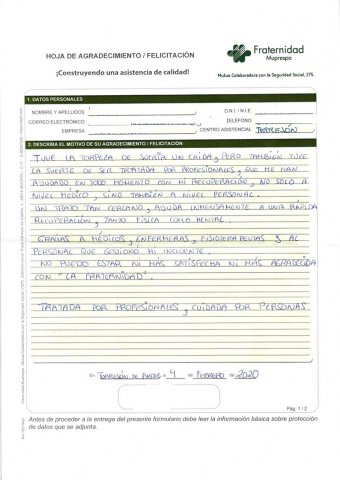 HOJA DE AGRADECIMIENTO / FELICITACIÓN
¡Construyendo una asistencia de calidad!
Fraternidad
Muprespa
Mutua Colaboradora con la Seguridad Social, 275
1. DATOS PERSONALES
NOMBRE Y APELLIDOS
D.N.I. / N.I.E.
CORREO ELECTRÓNICO
TELÉFONO
EMPRESA
CENTRO ASISTENCIAL TORREJÓN
2. DESCRIBA EL MOTIVO DE SU AGRADECIMIENTO / FELICITACIÓN
TUVE LA TORPEZA DE SUFRIR UN CAÍDA, PERO TAMBIÉN TUVE
LA SUERTE DE SER TRATADA POR PROFESIONALES, QUE ME HAN
AYUDADO EN TODO MOMENTO CON MI RECUPERACIÓN, NO SOLO A
NIVEL MÉDICO, SINO TAMBIÉN A NIVEL PERSONAL.
UN TRATO TAN CERCANO, AYUDA INMENSAMENTE A UNA RÁPIDA
RECUPERACIÓN, TANTO FÍSICA COMO MENTAL.
GRACIAS A MÉDICOS, ENFERMERAS, FISIOTERAPEUTAS Y AL
PERSONAL QUE GESTIONÓ MI
NO PUEDO ESTAR NI MÁS SATISFECHA NI MÁS AGRADECIDA
CON "LA FRATERNIDAD".
TRATADA POR PROFESIONALES, CUIDADA POR PERSONAS.
En TORREJÓN DE ARDOZ a 4 de FEBRERO de 2020
Pág. 1 / 2
Antes de proceder a la entrega del presente formulario debe leer la información básica sobre protección
de datos que se adjunta.